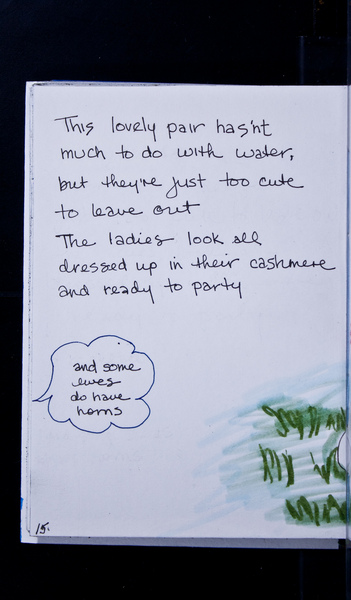 This lovely pair has'nt
much to do with water,
but they're just too cute
to leave out
The ladies look all
dressed up in their cashmere
and ready to party
and some
ewes
do have
horns
15.